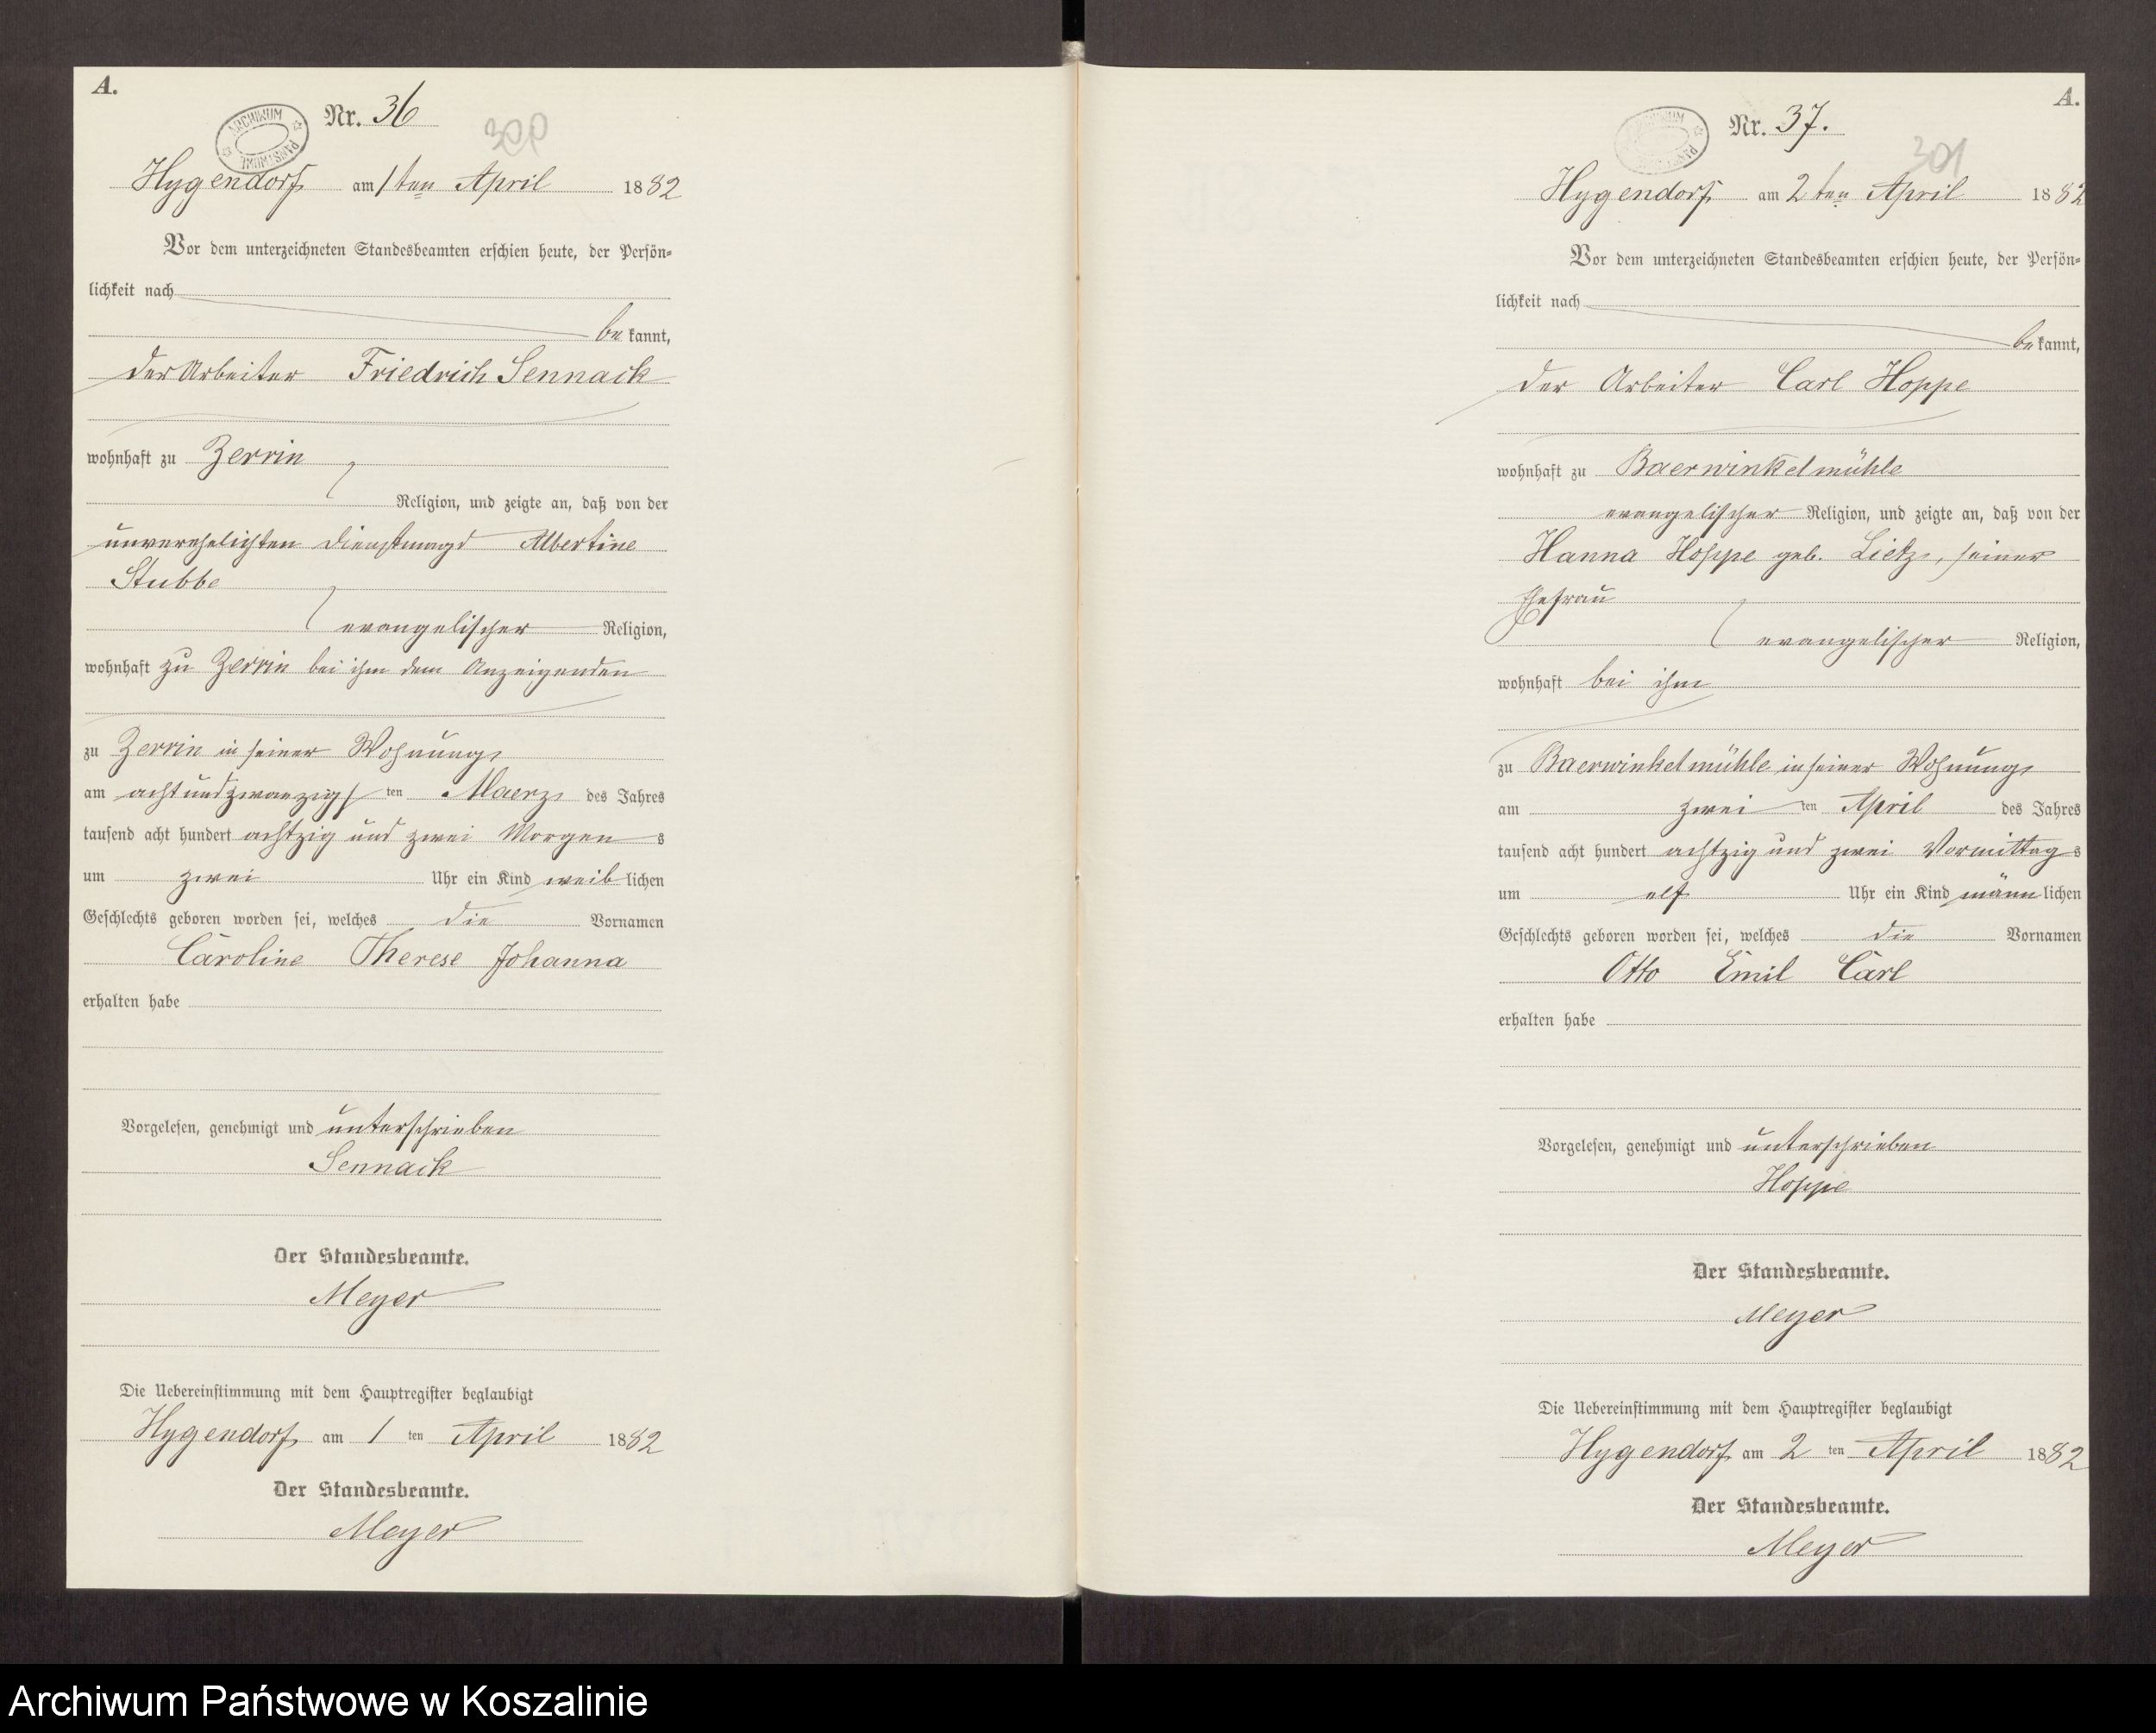 A.
ARCHIWUM PAŃSTWOWE
Nr. 36
300
Hygendorf am 1 ten April 1882
Vor dem unterzeichneten Standesbeamten erschien heute, der Persön-
lichkeit nach
be kannt,
der Arbeiter Friedrich Sennack
wohnhaft zu Zerrin
Religion, und zeigte an, daß von der
unverehelichten Dienstmagd Albertine
Stubbe
evangelischer Religion,
wohnhaft zu Zerrin bei ihm dem Anzeigenden
zu Zerrin in seiner Wohnung
am achtundzwanzigs ten Maerz des Jahres
tausend acht hundert achtzig und zwei Morgen s
um zwei Uhr ein Kind weib lichen
Geschlechts geboren worden sei, welches die Vornamen
Caroline Therese Johanna
erhalten habe
Vorgelesen, genehmigt und unterschrieben
Sennack
Der Standesbeamte.
Meyer
Die Uebereinstimmung mit dem Hauptregister beglaubigt
Hygendorf am 1 ten April 1882
Der Standesbeamte.
Meyer
A.
Nr. 37.
301
Hygendorf am 2 ten April 1882
Vor dem unterzeichneten Standesbeamten erschien heute, der Persön-
lichkeit nach
be kannt,
der Arbeiter Carl Hoppe
wohnhaft zu Baerwinkelmühle
evangelischer Religion, und zeigte an, daß von der
Hanna Hoppe geb. Lietz, seiner
Ehefrau
evangelischer Religion,
wohnhaft bei ihm
zu Baerwinkelmühle in seiner Wohnung
am zwei ten April des Jahres
tausend acht hundert achtzig und zwei Vormittag s
um elf Uhr ein Kind männ lichen
Geschlechts geboren worden sei, welches die Vornamen
Otto Emil Carl
erhalten habe
Vorgelesen, genehmigt und unterschrieben
Hoppe
Der Standesbeamte.
Meyer
Die Uebereinstimmung mit dem Hauptregister beglaubigt
Hygendorf am 2 ten April 1882
Der Standesbeamte.
Meyer
Archiwum Państwowe w Koszalinie